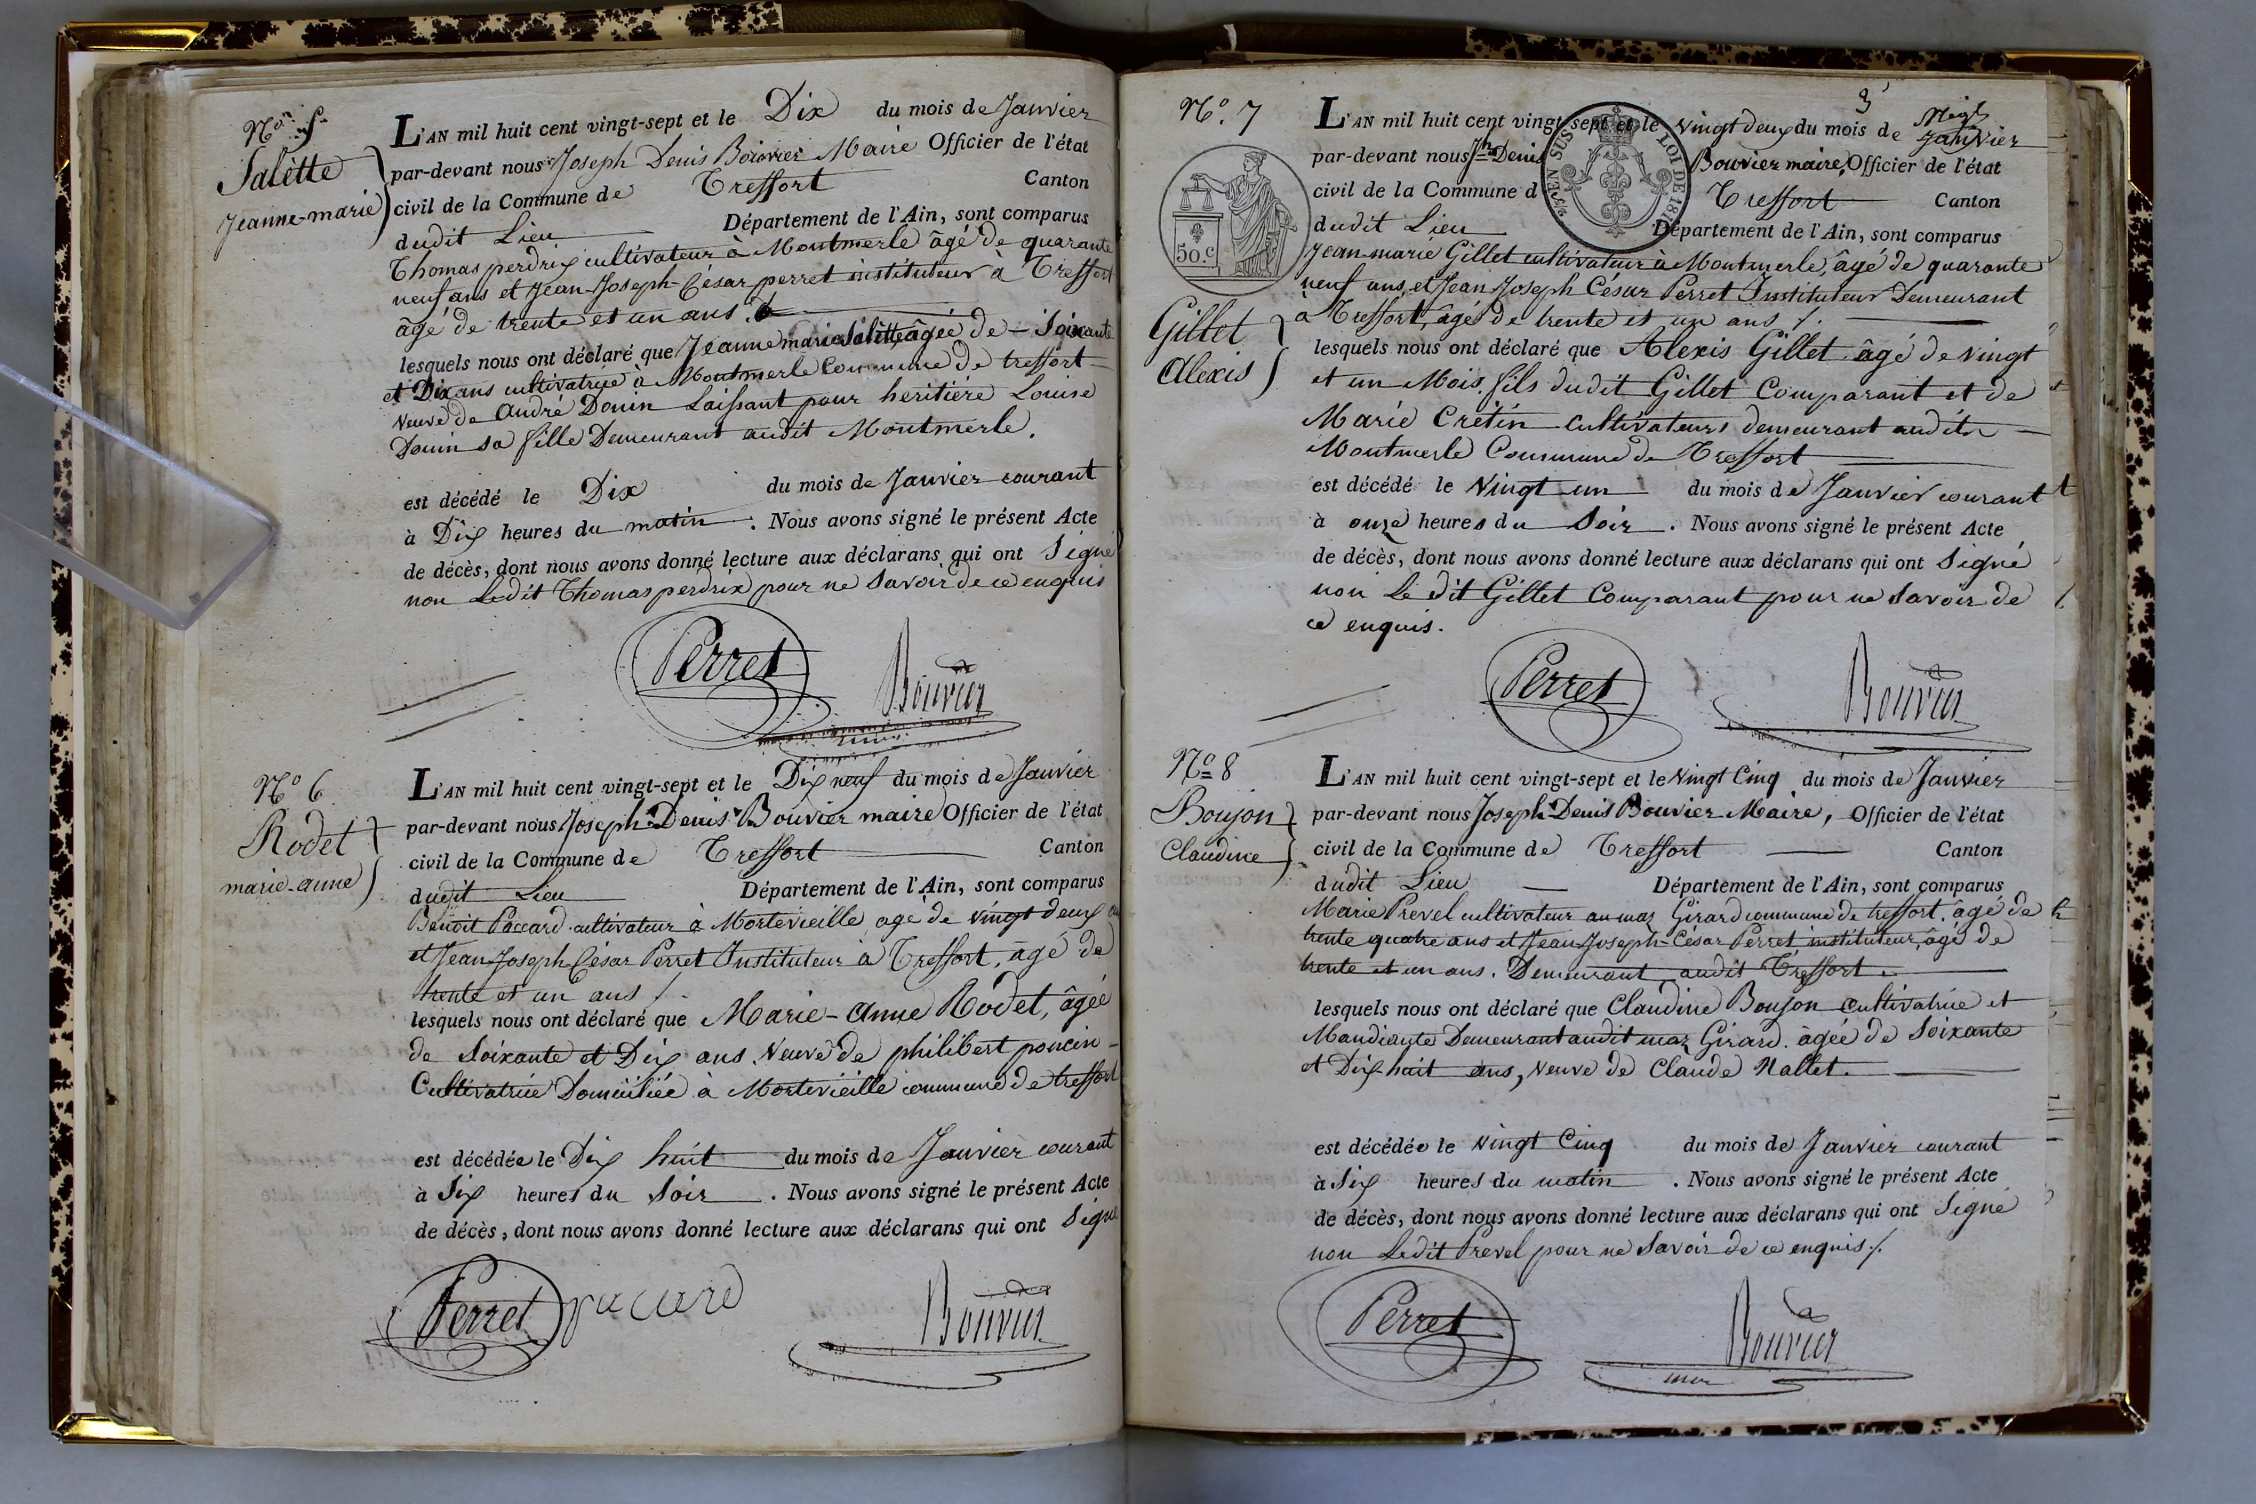 No. 5.
Salètte
Jeanne-marie
L'AN mil huit cent vingt-sept et le Dix du mois de Janvier
par-devant nous Joseph Denis Bouvier Maire Officier de l'état
civil de la Commune de Treffort Canton
dudit Lieu Département de l'Ain, sont comparus
Thomas perdrix cultivateur à Montmerle âgé de quarante
neuf ans et Jean-Joseph-César perret instituteur à Treffort
âgé de trente et un ans.
lesquels nous ont déclaré que Jeanne marie Salitte, âgée de - Soixante
et Dix ans cultivatrice à Montmerle Commune de treffort
veuve de André Douin Laissant pour heritière Louise
Douin sa fille Demeurant audit Montmerle.
est décédé le Dix du mois de Janvier courant
à Dix heures du matin. Nous avons signé le présent Acte
de décès, dont nous avons donné lecture aux déclarans qui ont Signé
non Ledit Thomas perdrix pour ne Savoir de ce enquis
Perret Bouvier
No 6
Rodet
marie-anne
L'AN mil huit cent vingt-sept et le Dix neuf du mois de Janvier
par-devant nous Joseph-Denis Bouvier maire Officier de l'état
civil de la Commune de Treffort Canton
dudit Lieu Département de l'Ain, sont comparus
Benoit Paccard cultivateur à Mortevieille agé de vingt deux
et Jean Joseph César Perret Instituteur à Treffort, âgé de
trente et un ans /.
lesquels nous ont déclaré que Marie-Anne Rodet, âgée
de Soixante et Dix ans Veuve de philibert poncin -
Cultivatrice Domiciliée à Mortevieille commune de treffort
est décédée le Dix huit du mois de Janvier courant
à Six heures du Soir. Nous avons signé le présent Acte
de décès, dont nous avons donné lecture aux déclarans qui ont Signé
Perret paccard Bouvier
3
No. 7
50. c
Gillet
Alexis
L'AN mil huit cent vingt-sept et le vingt deux du mois de Janvier
par-devant nous Jh Denis Bouvier maire, Officier de l'état
civil de la Commune d Treffort Canton
dudit Lieu Département de l'Ain, sont comparus
EN SUS LOI DE 181
Jean-marie Gillet cultivateur à Montmerle, âgé de quarante
neuf ans, et Jean Joseph César Perret Instituteur Demeurant
à Treffort, âgé de trente et un ans /.
lesquels nous ont déclaré que Alexis Gillet âgé de vingt
et un Mois, fils dudit Gillet Comparant et de
Marie Crétin cultivateurs demeurant audit
Montmerle Commune de Treffort
est décédé le Vingt un du mois de Janvier courant
à onze heures du Soir. Nous avons signé le présent Acte
de décès, dont nous avons donné lecture aux déclarans qui ont Signé
non Le dit Gillet Comparant pour ne Savoir de
ce enquis.
Perret Bouvier
No 8
Boujon
Claudine
L'AN mil huit cent vingt-sept et le Vingt Cinq du mois de Janvier
par-devant nous Joseph-Denis Bouvier Maire, Officier de l'état
civil de la Commune de Treffort Canton
dudit Lieu Département de l'Ain, sont comparus
Marie Prevel cultivateur au mas Girard commune de treffort, âgé de
trente quatre ans et Jean-Joseph-César Perret instituteur, âgé de
trente et un ans. Demeurant audit Treffort.
lesquels nous ont déclaré que Claudine Boujon cultivatrice et
Mandiante Demeurant audit mas Girard. âgée de Soixante
et Dix-huit ans, veuve de Claude Nallet.
est décédée le Vingt Cinq du mois de Janvier courant
à Six heures du matin. Nous avons signé le présent Acte
de décès, dont nous avons donné lecture aux déclarans qui ont Signé
non Ledit Prevel pour ne Savoir de ce enquis /.
Perret Bouvier